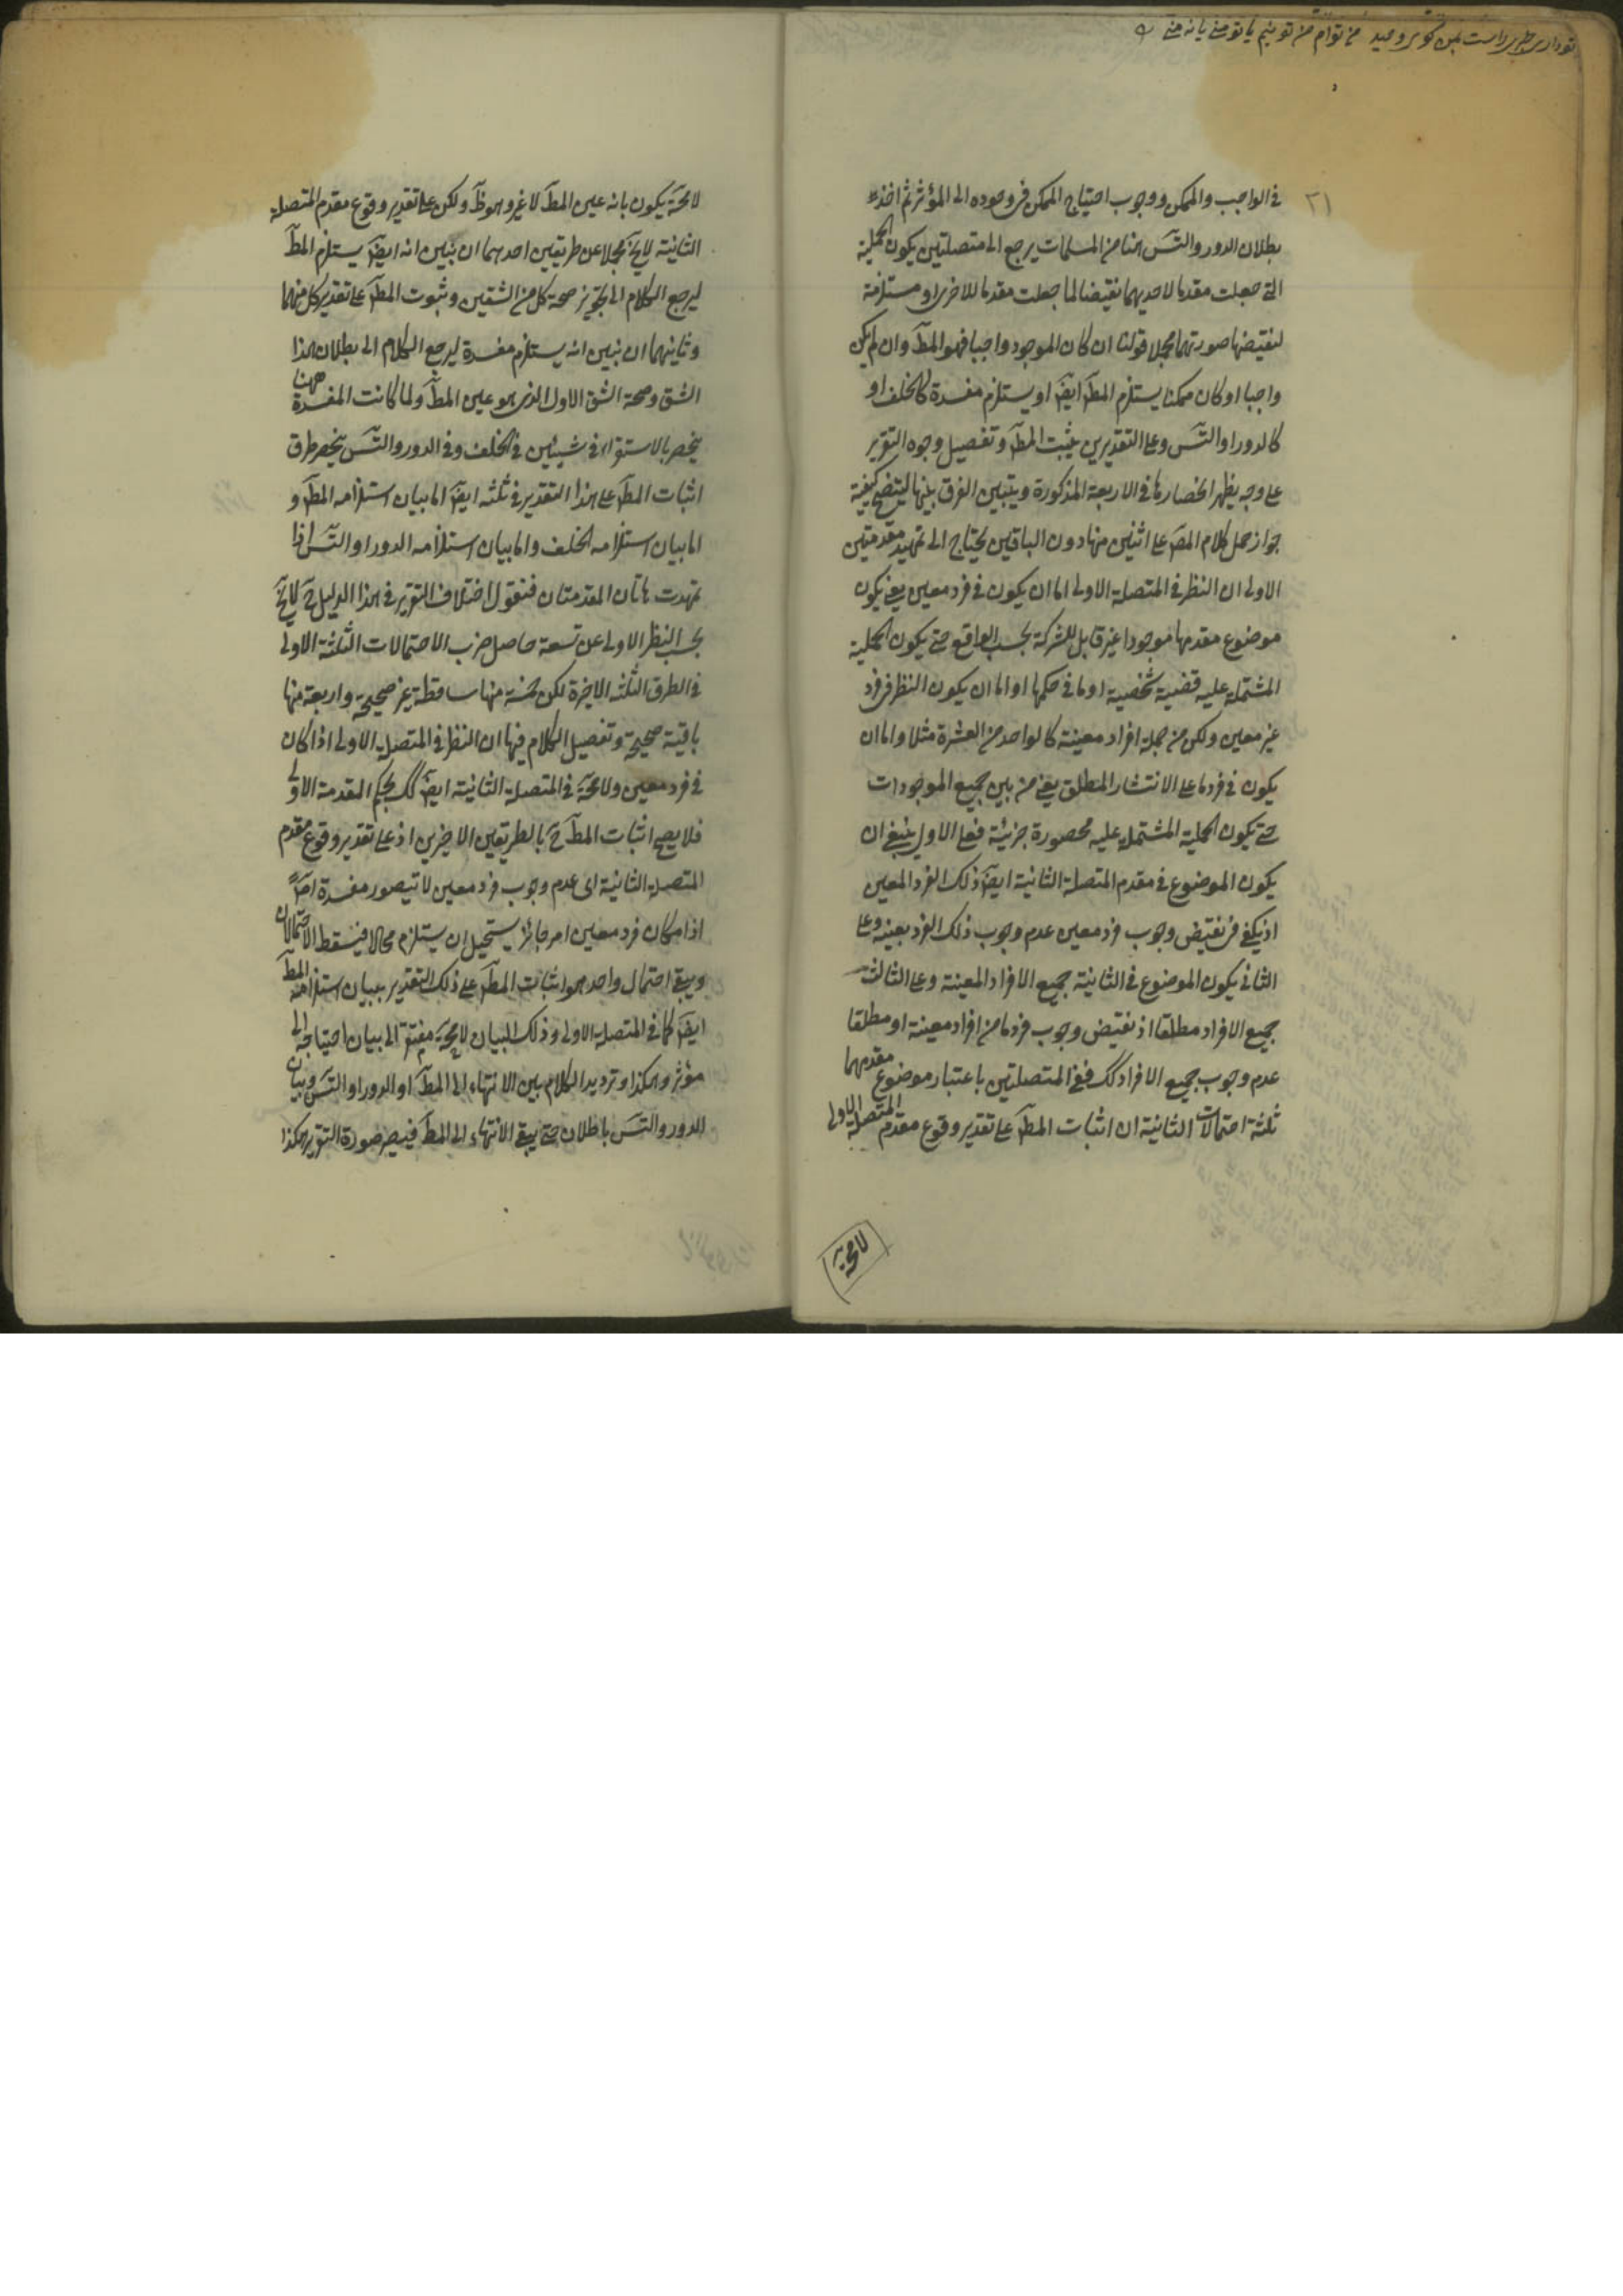 في الواجب والممكن ووجوب احتياج الممكن في وجوده الى المؤثر ثم اخذ
٢١
بطلان الدور والتس هنا من المسلمات يرجع الى متصلتين يكون الحملية
التي جعلت مقدما لاحديهما نقيضا لما جعلت مقدما للاخرى او مستلزمة
لنقيضها صورتهما مجملا قولنا ان كان الموجود واجبا فهو المط وان لم يكن
واجبا او كان ممكنا يستلزم المط ايض او يستلزم مفسدة كالخلف او
كالدور او التس وعلى التقديرين يثبت المط وتفصيل وجوه التقرير
على وجه يظهر انحصارها في الاربعة المذكورة ويتبين الفرق بينها ليتضح كيفية
جواز حمل كلام المص على اثنين منها دون الباقيين يحتاج الى تمهيد مقدمتين
الاولى ان النظر في المتصلة الاولى اما ان يكون في فرد معين يعني يكون
موضوع مقدمها موجودا غير قابل للشركة بحسب الواقع حتى يكون الحملية
المشتملة عليه قضية شخصية او ما في حكمها او اما ان يكون النظر في فرد
غير معين ولكن من جملة افراد معينة كالواحد من العشرة مثلا واما ان
يكون في فرد ما على الانتشار المطلق يعني من بين جميع الموجودات
حتى يكون الحملية المشتملة عليه محصورة جزئية فعلى الاول ينبغي ان
يكون الموضوع في مقدم المتصلة الثانية ايض ذلك الفرد المعين
اذ يكفي في نقيض وجوب فرد معين عدم وجوب ذلك الفرد بعينه وعلى
الثاني يكون الموضوع في الثانية جميع الافراد المعينة وعلى الثالث
جميع الافراد مطلقا اذ نقيض وجوب فرد ما من افراد معينة او مطلقا
عدم وجوب جميع الافراد كك ففي المتصلتين باعتبار موضوع مقدمهما
ثلثة احتمالات الثانية ان اثبات المط على تقدير وقوع مقدم المتصلة الاولى
لا محة
لا محة يكون بانه عين المط لا غير وهو ظ ولكن على تقدير وقوع مقدم المتصلة
الثانية لا يخ مجملا عن طريقين احدهما ان نبين انه ايض يستلزم المط
ليرجع الكلام الى تجويز صحة كل من الشقين وثبوت المط على تقدير كل منهما
وثانيهما ان نبين انه يستلزم مفسدة ليرجع الكلام الى بطلان هذا
الشق وصحة الشق الاول الذي هو عين المط ولما كانت المفسدة ههنا
ينحصر بالاستقراء في شيئين في الخلف وفي الدور والتس ينحصر طرق
اثبات المط على هذا التقدير في ثلثة ايض اما بيان استلزامه المط و
اما بيان استلزامه الخلف واما بيان استلزامه الدور او التس اذا
تمهدت هاتان المقدمتان فنقول اختلاف التقرير في هذا الدليل ح لا يخ
بحسب النظر الاولى عن تسعة حاصل ضرب الاحتمالات الثلثة الاولى
في الطرق الثلثة الاخيرة لكن خمسة منها ساقطة غير صحيحة واربعة منها
باقية صحيحة وتفصيل الكلام فيها ان النظر في المتصلة الاولى اذا كان
في فرد معين ولا محة في المتصلة الثانية ايض كك بحكم المقدمة الاولى
فلا يصح اثبات المط ح بالطريقين الاخيرين اذ على تقدير وقوع مقدم
المتصلة الثانية اى عدم وجوب فرد معين لا يتصور مفسدة اصلا
اذ امكان فرد معين امر جائز يستحيل ان يستلزم محالا فيسقط الاحتمالان
ويبقى احتمال واحد هو اثبات المط على ذلك التقدير ببيان استلزامه المط
ايض كما في المتصلة الاولى وذلك البيان لا محة مفتقر الى بيان احتياجه الى
مؤثر وهكذا وترديد الكلام بين الانتهاء الى المط او الدور او التس وبيان
الدور والتس باطلان حتى يبقى الانتهاء الى المط فيصير صورة التقرير هكذا